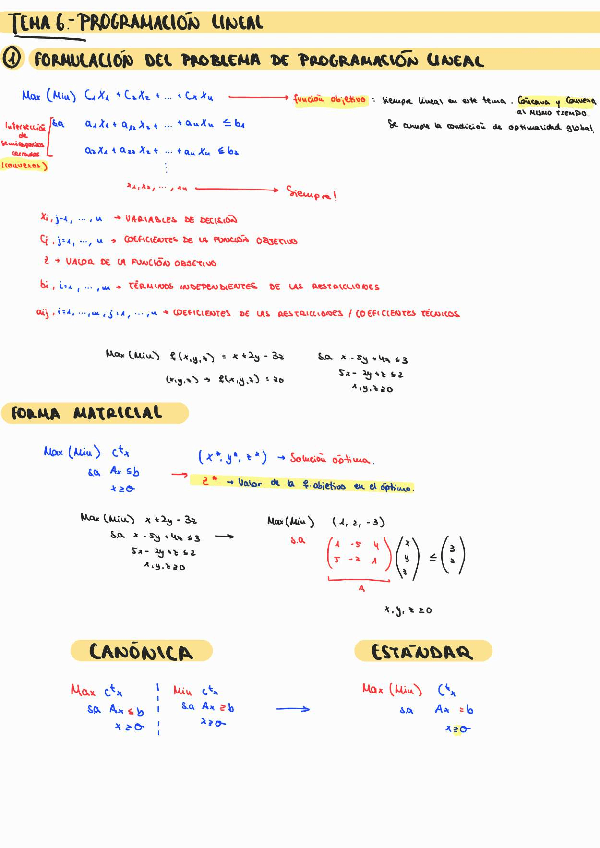 TEMA 6.- PROGRAMACIÓN LINEAL
① FORMULACIÓN DEL PROBLEMA DE PROGRAMACIÓN LINEAL
Max (Min) C₁X₁ + C₂X₂ + ... + CₙXₙ → función objetivo : siempre lineal en este tema. Cóncava y Convexa
AL MISMO TIEMPO.
Se cumple la condición de optimalidad global.
Intersección
de
semiespacios
cerrados
(convexos)
sa a₁₁X₁ + a₁₂X₂ + ... + aₙXₙ ≤ b₁
a₂₁X₁ + a₂₂X₂ + ... + aₙXₙ ≤ b₂
⋮
x₁, x₂, ..., xₙ → Siempre!
Xⱼ, j=1, ..., n → VARIABLES DE DECISIÓN
Cⱼ, j=1, ..., n → COEFICIENTES DE LA FUNCIÓN OBJETIVO
Z → VALOR DE LA FUNCIÓN OBJETIVO
bi, i=1, ..., m → TÉRMINOS INDEPENDIENTES DE LAS RESTRICCIONES
aij, i=1, ..., m, j=1, ..., n → COEFICIENTES DE LAS RESTRICCIONES / COEFICIENTES TÉCNICOS
Max (Min) f(x,y,z) = x+2y-3z sa x-5y+4z ≤ 3
5x-2y+z ≤ 2
(x,y,z) → f(x,y,z) = 20
x,y,z ≥ 0
FORMA MATRICIAL
Max (Min) cᵗx
sa Ax ≤ b
x ≥ 0
→ (x*, y*, z*) → Solución óptima.
z* → Valor de la f. objetivo en el óptimo.
Max (Min) x+2y-3z
sa x-5y+4z ≤ 3
5x-2y+z ≤ 2
x,y,z ≥ 0
→
Max (Min) (1, 2, -3)
s.a
(1 -5 4) (x) (3)
(5 -2 1) (y) ≤ (2)
(z)
A
x, y, z ≥ 0
CANÓNICA
Max cᵗx
sa Ax ≤ b
x ≥ 0
Min cᵗx
sa Ax ≥ b
x ≥ 0
→
ESTÁNDAR
Max (Min) cᵗx
sa Ax = b
x ≥ 0